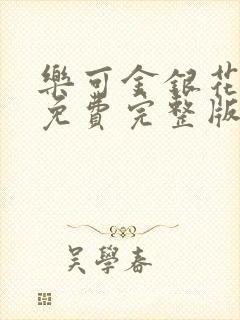 樂可金銀花
免費完整版
吳學春